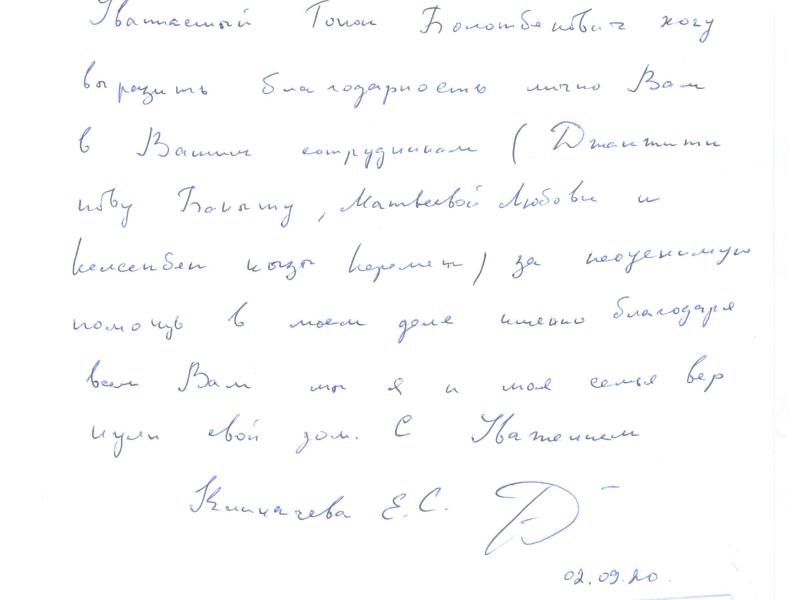 Уважаемый Токон Болотбекович хочу
выразить благодарность лично Вам
и Вашим сотрудникам ( Джантими
нову Бакыту, Матвеевой Любови и
Келсенбек кызы Керемет) за неоценимую
помощь в моем деле именно благодаря
всем Вам мы я и моя семья вер
нули свой дом. С Уважением
Е.С.
02.09.20.